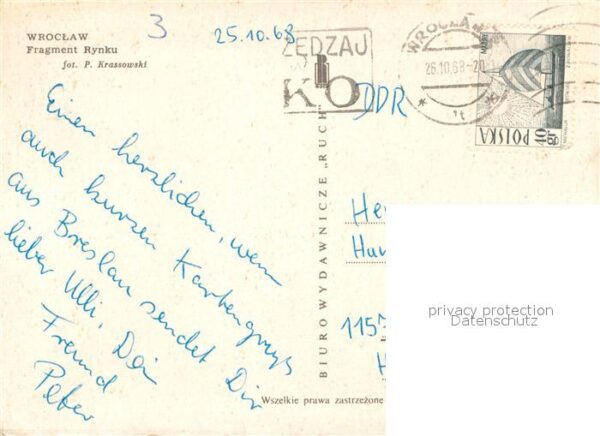 WROCŁAW
Fragment Rynku
fot. P. Krassowski
3
25.10.68
Einen herzlichen, wenn
auch kurzen Kartengruß
aus Breslau sendet Dir
lieber Ulli, Dein
Freund
Peter
BIURO WYDAWNICZE „RUCH"
ZĘDZAJ
W
PKO
WROCŁAW
26.10.68-20
POLSKA
40 gr
DDR
He
Hu
115
H
privacy protection
Datenschutz
Wszelkie prawa zastrzeżone